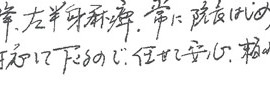 挙、左半身麻痺、常に院長はじめ
して下さるので、任せて安心、